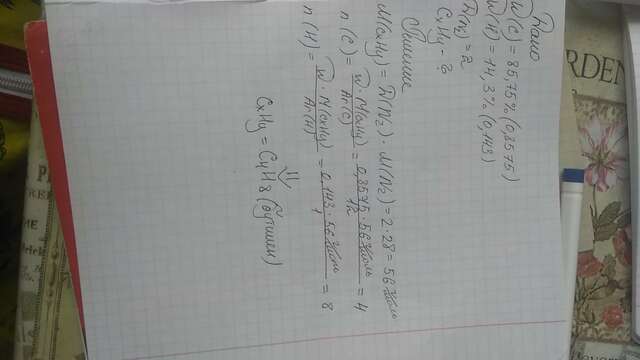 Дано
W(C) = 85,75% (0,8575)
W(H) = 14,3% (0,143)
D(N₂) = 2
CxHy - ?
Решение
M(CxHy) = D(N₂) · M(N₂) = 2 · 28 = 56 г/моль
n(C) = W · M(CxHy) / Ar(C) = 0,8575 · 56 г/моль / 12 = 4
n(H) = W · M(CxHy) / Ar(H) = 0,143 · 56 г/моль / 1 = 8
⇓
CxHy = C₄H₈ (бутилен)
RDEN